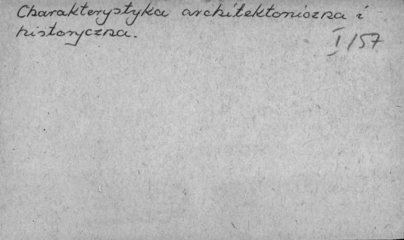 Charakterystyka architektoniczna i
historyczna.
I/57